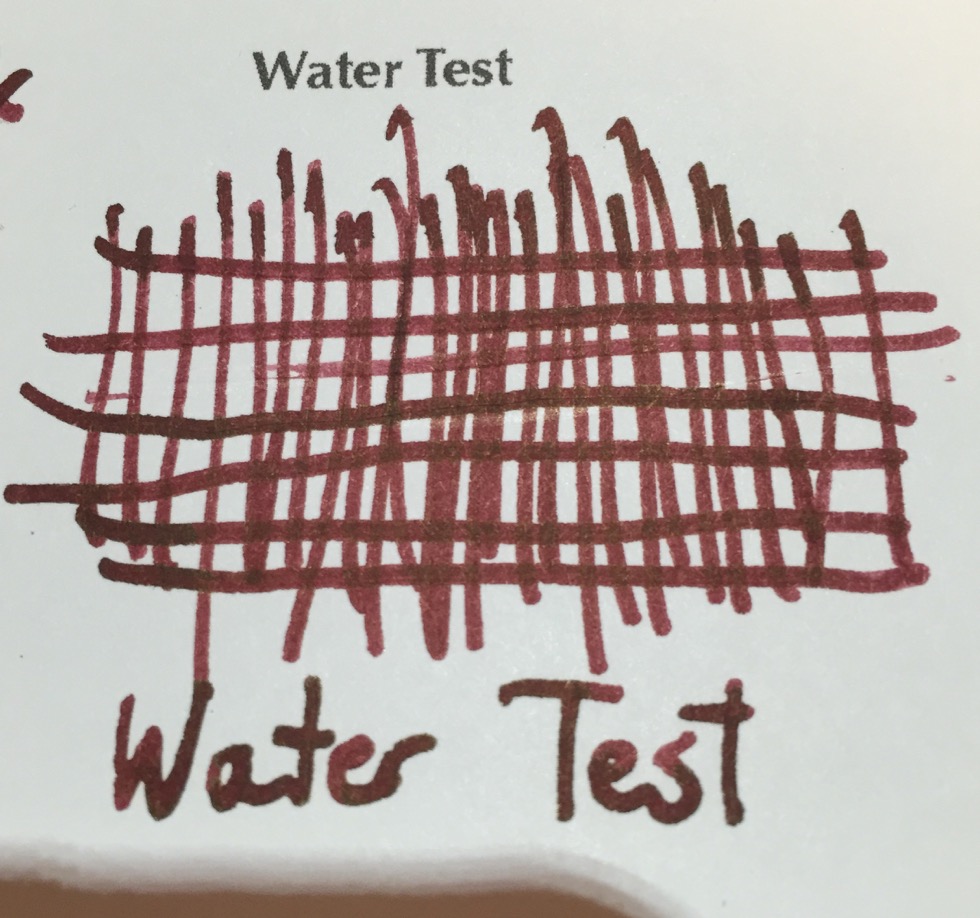 Water Test
Water Test